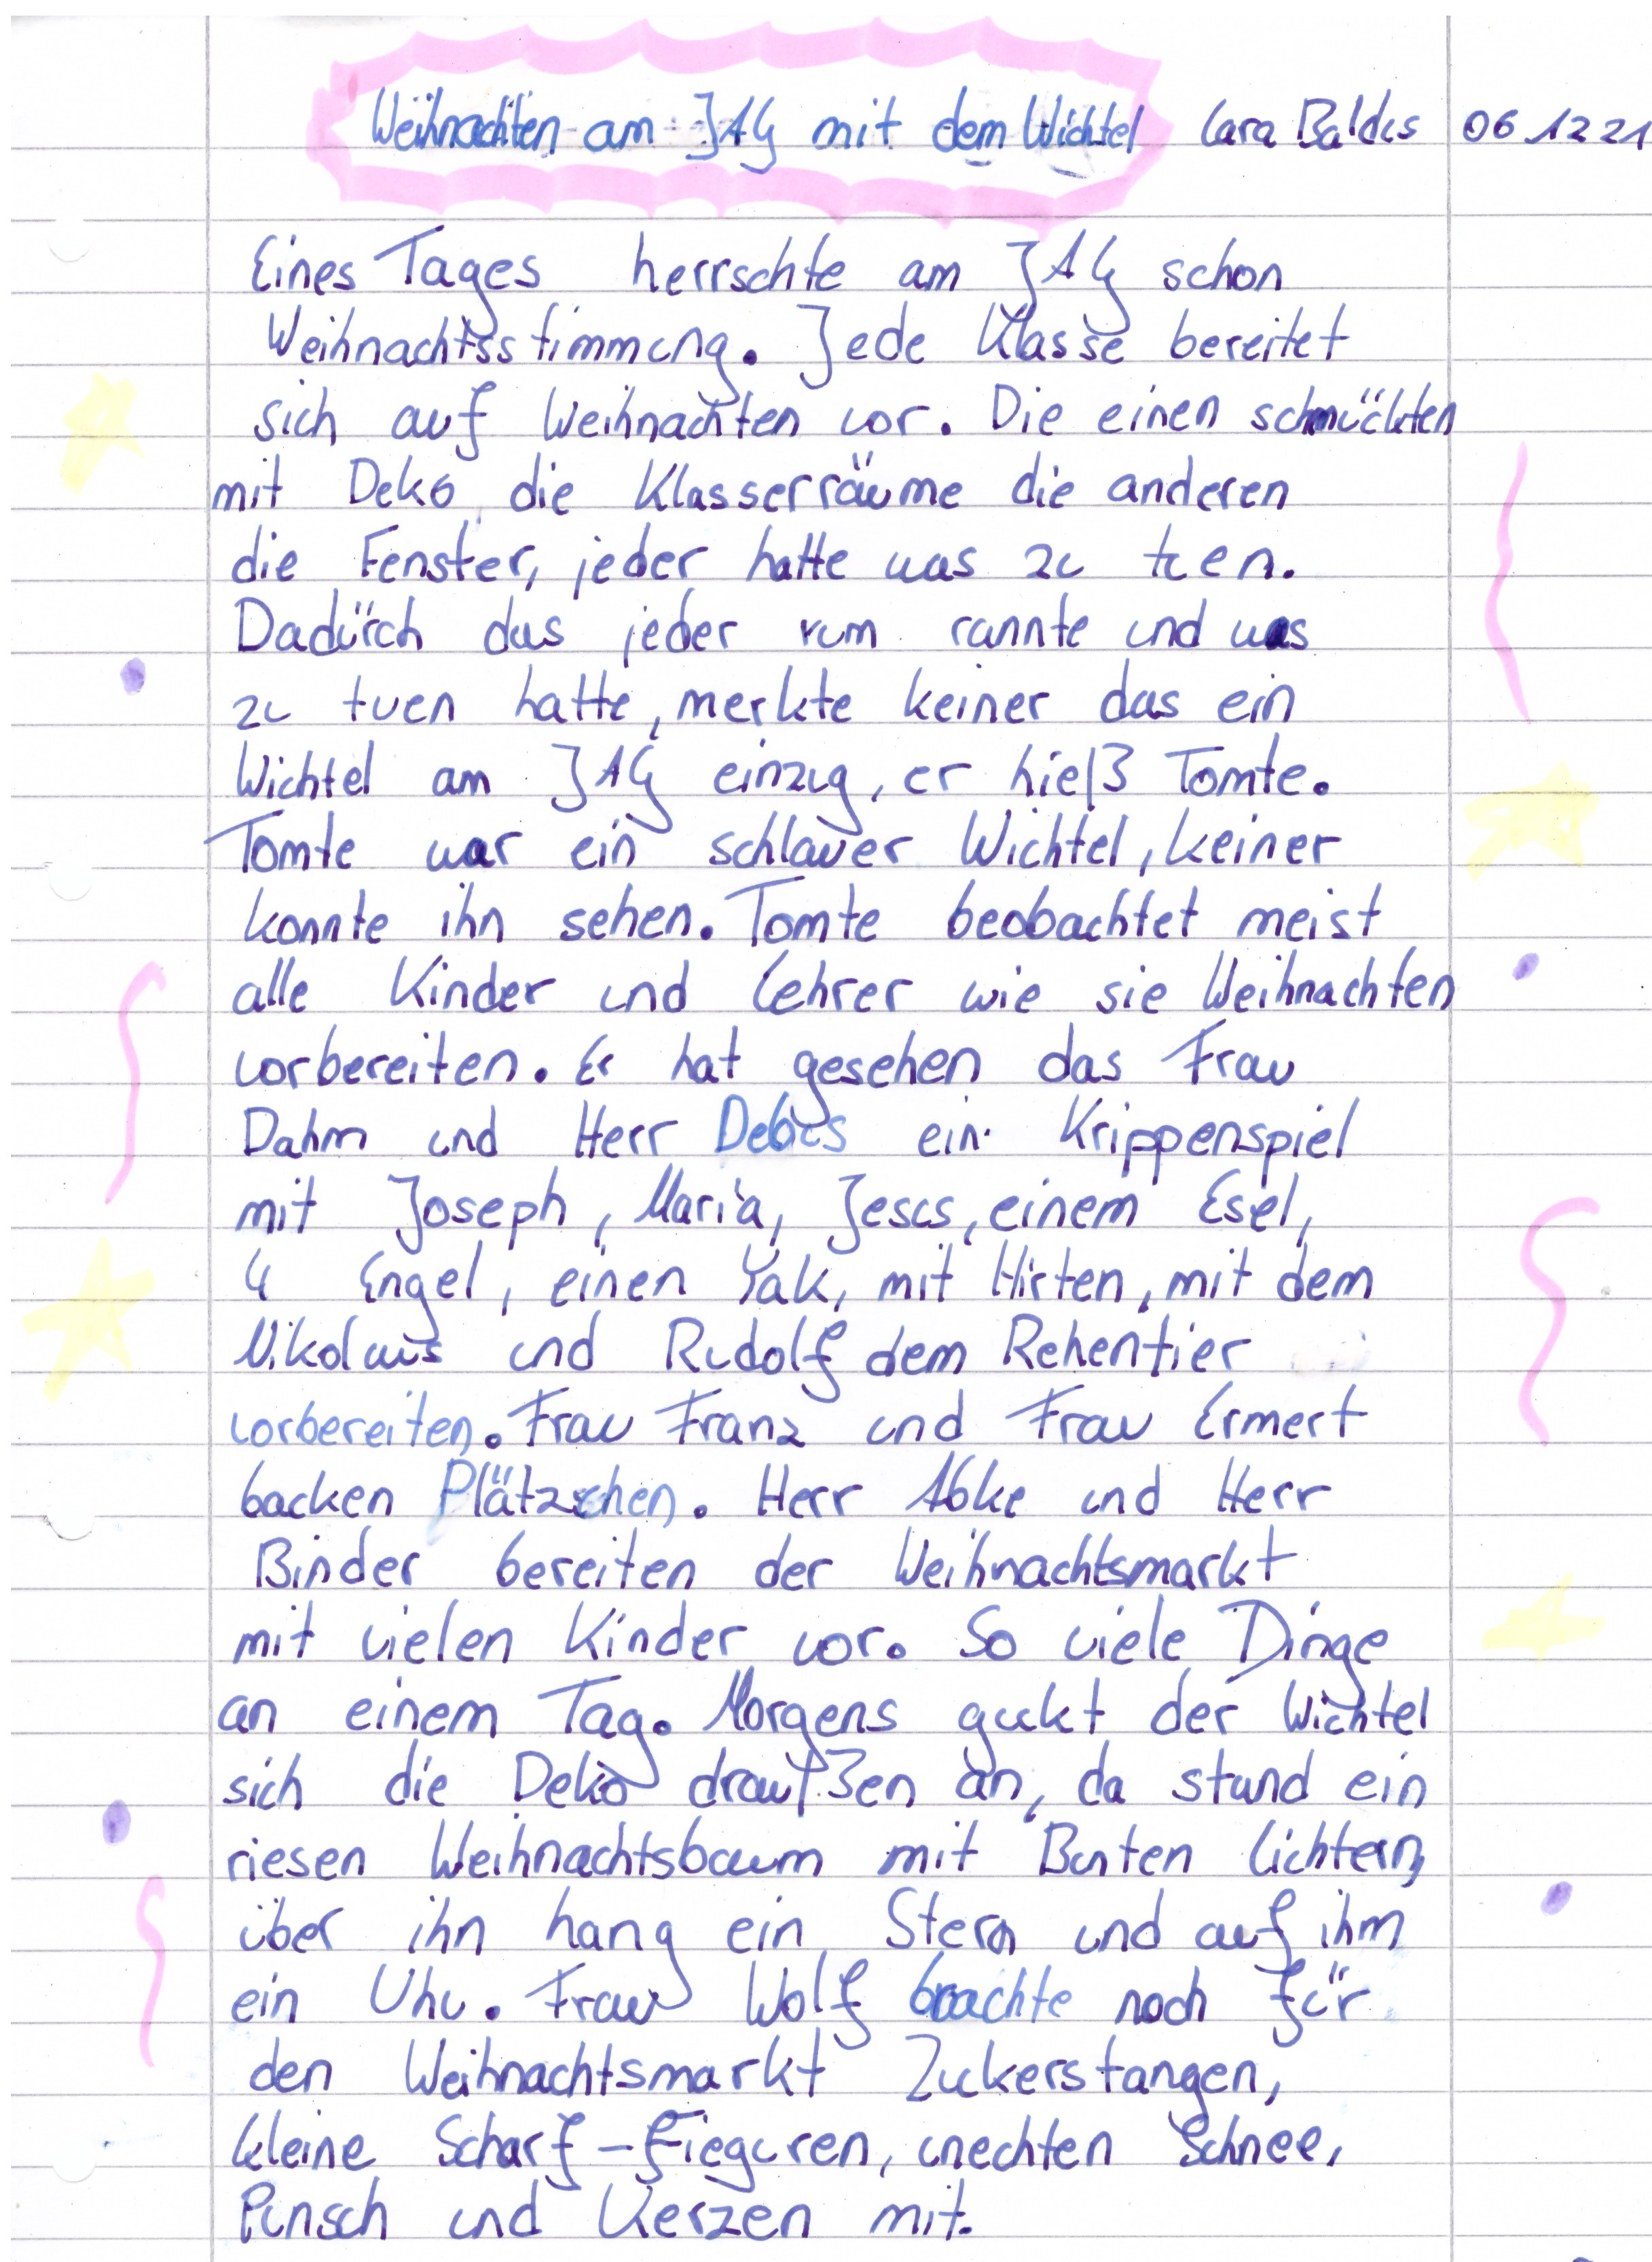 Weihnachten am JAG mit dem Wichtel Lara Baldes 06.12.21
Eines Tages herrschte am JAG schon
Weihnachtsstimmung. Jede Klasse bereitet
sich auf Weihnachten vor. Die einen schmückten
mit Deko die Klasserräume die anderen
die Fenster, jeder hatte was zu tuen.
Dadürch das jeder rum rannte und was
zu tuen hatte, merkte keiner das ein
Wichtel am JAG einzug, er hieß Tomte.
Tomte war ein schlauer Wichtel, keiner
konnte ihn sehen. Tomte beobachtet meist
alle Kinder und Lehrer wie sie Weihnachten
vorbereiten. Er hat gesehen das Frau
Dahm und Herr ein Krippenspiel
mit Joseph, Maria, Jesus, einem Esel,
4 Engel, einen Yak, mit Hirten, mit dem
Nikolaus und Rudolf dem Rehentier
vorbereiten. Frau Franz und Frau Ermert
backen Plätzchen. Herr Abke und Herr
Binder bereiten der Weihnachtsmarkt
mit vielen Kinder vor. So viele Dinge
an einem Tag. Morgens guckt der Wichtel
sich die Deko draußen an, da stand ein
riesen Weihnachtsbaum mit Bunten Lichtern,
über ihn hang ein Stern und auf ihm
ein Uhu. Frau Wolf brachte noch für
den Weihnachtsmarkt Zuckerstangen,
kleine Scharf-fieguren, unechten Schnee,
Punsch und Kerzen mit.